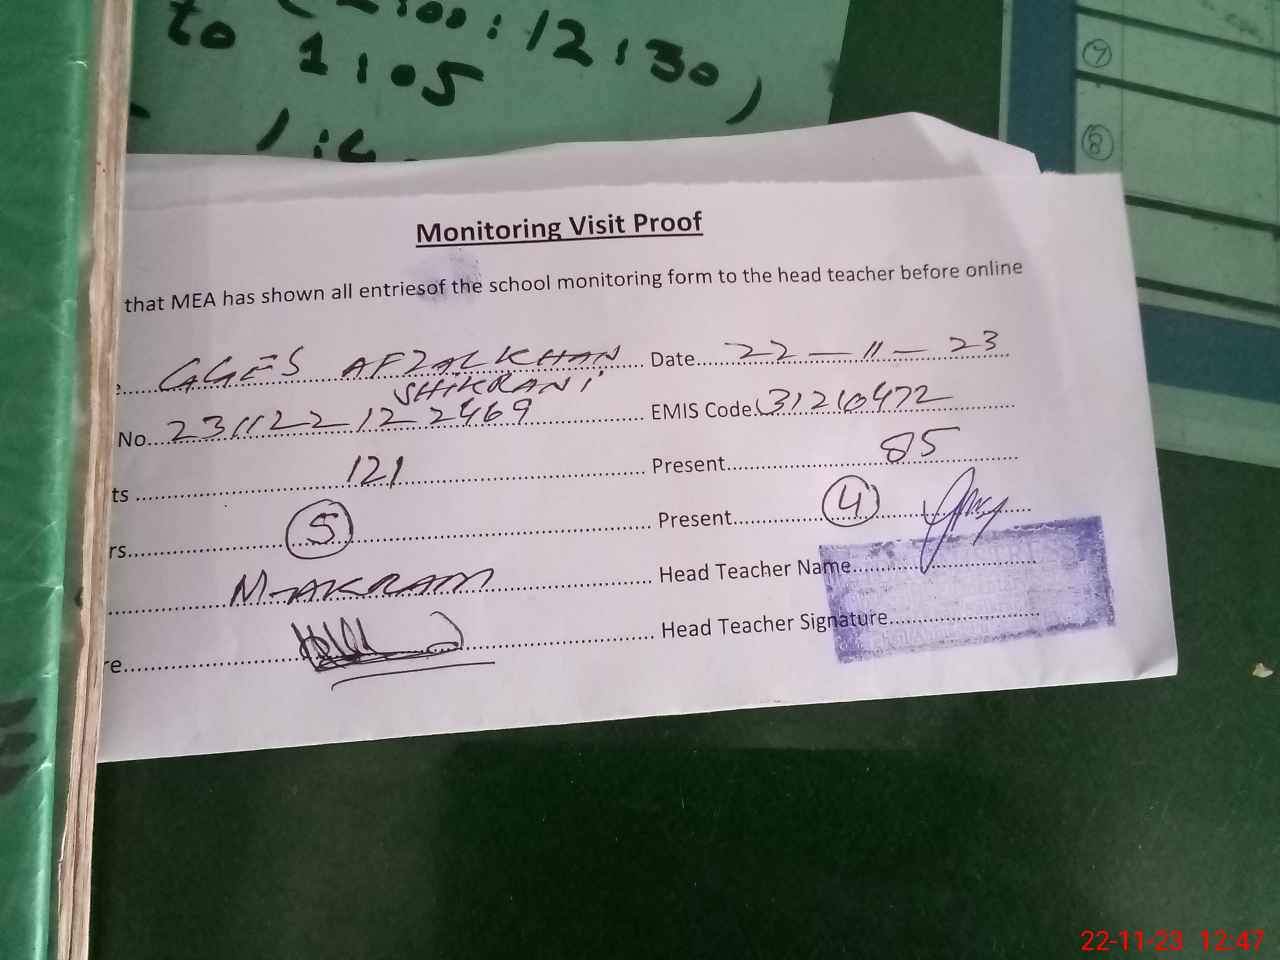 (2:00:12:30)
to 1:05
7
8
Monitoring Visit Proof
that MEA has shown all entriesof the school monitoring form to the head teacher before online
GGES AFZAL KHAN Date 22-11-23
SHIKRANI
No. 231122122469 EMIS Code 31210472
ts 121 Present 85
rs 5 Present 4
M-AKRAM Head Teacher Name
re Head Teacher Signature
22-11-23 12:47